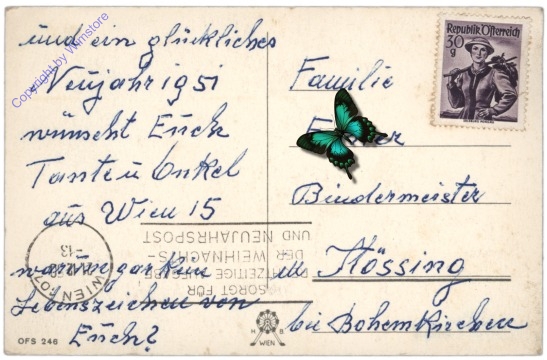 und ein glückliches
Neujahr 1951
wünscht Euch
Tante u Onkel
aus Wien 15
warum gar kein
Lebenszeichen von
Euch?
OFS 246
Copyright by Wimstore
Republik Österreich
30
g
Familie
Bindermeister
in Hössing
bei Böhemkirchen
SORGT FÜR
RECHTZEITIGE AUFGABE
DER WEIHNACHTS-
UND NEUJAHRSPOST
WIEN
H B
WIEN